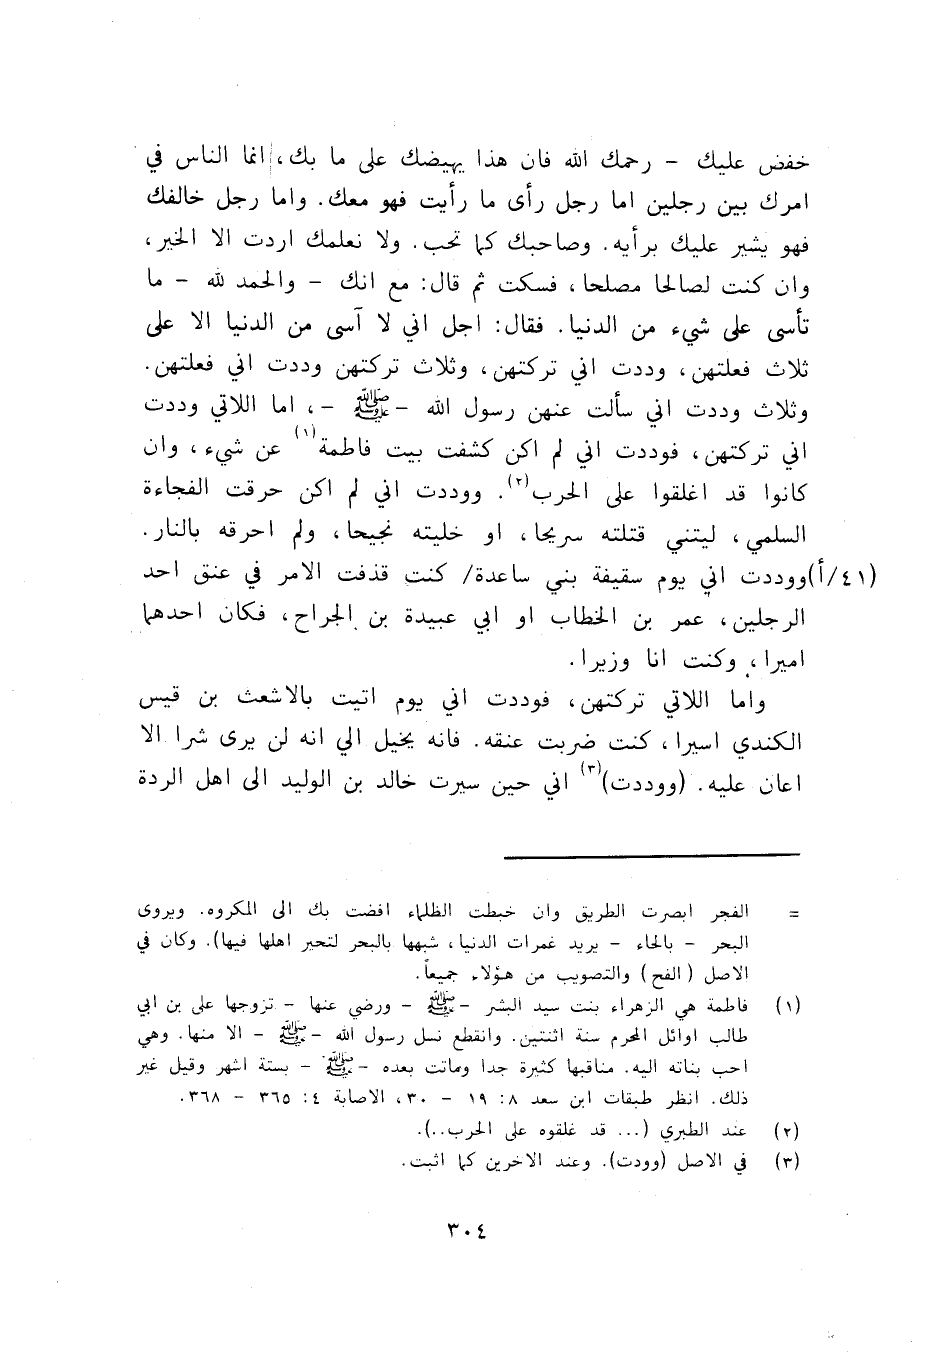 خفض عليك - رحمك الله فان هذا يهيضك على ما بك، انما الناس في
امرك بين رجلين اما رجل رأى ما رأيت فهو معك. واما رجل خالفك
فهو يشير عليك برأيه. وصاحبك كما تحب. ولا نعلمك اردت الا الخير،
وان كنت لصالحا مصلحا، فسكت ثم قال: مع انك - والحمد لله - ما
تأسى على شيء من الدنيا. فقال: اجل اني لا آسى من الدنيا الا على
ثلاث فعلتهن، وددت اني تركتهن، وثلاث تركتهن وددت اني فعلتهن.
وثلاث وددت اني سألت عنهن رسول الله - ﷺ -، اما اللاتي وددت
اني تركتهن، فوددت اني لم اكن كشفت بيت فاطمة(١) عن شيء، وان
كانوا قد اغلقوا على الحرب(٢). ووددت اني لم اكن حرقت الفجاءة
السلمي، ليتني قتلته سريحا، او خليته نجيحا، ولم احرقه بالنار.
(٤١/أ) ووددت اني يوم سقيفة بني ساعدة/ كنت قذفت الامر في عنق احد
الرجلين، عمر بن الخطاب او ابي عبيدة بن الجراح، فكان احدهما
اميرا، وكنت انا وزيرا.
واما اللاتي تركتهن، فوددت اني يوم اتيت بالاشعث بن قيس
الكندي اسيرا، كنت ضربت عنقه. فانه يخيل الي انه لن يرى شرا الا
اعان عليه. (ووددت)(٣) اني حين سيرت خالد بن الوليد الى اهل الردة
= الفجر ابصرت الطريق وان خبطت الظلماء افضت بك الى المكروه. ويروى
البحر - بالحاء - يريد غمرات الدنيا، شبهها بالبحر لتحير اهلها فيها). وكان في
الاصل (الفح) والتصويب من هؤلاء جميعاً.
(١) فاطمة هي الزهراء بنت سيد البشر - ﷺ - ورضي عنها - تزوجها علي بن ابي
طالب اوائل المحرم سنة اثنتين. وانقطع نسل رسول الله - ﷺ - الا منها. وهي
احب بناته اليه. مناقبها كثيرة جدا وماتت بعده - ﷺ - بستة اشهر وقيل غير
ذلك. انظر طبقات ابن سعد ٨: ١٩ - ٣٠، الاصابة ٤: ٣٦٥ - ٣٦٨.
(٢) عند الطبري (... قد غلقوه على الحرب..).
(٣) في الاصل (وودت). وعند الاخرين كما اثبت.
٣٠٤